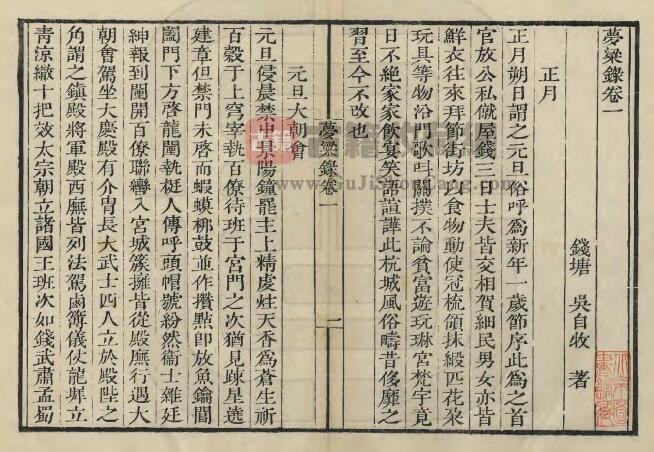 夢粱錄卷一
錢塘 吳自牧 著
正月
正月朔日謂之元旦俗呼爲新年一歲節序此爲之首
官放公私僦屋錢三日士夫皆交相賀細民男女亦皆
鮮衣往來拜節街坊以食物動使冠梳領抹緞匹花朶
玩具等物沿門歌叫關撲不論貧富遊玩琳宮梵宇竟
日不絕家家飲宴笑語諠譁此杭城風俗疇昔侈靡之
習至今不改也
夢粱錄卷一
一
元旦大朝會
元旦侵晨禁中景陽鐘罷主上精虔炷天香爲蒼生祈
百穀于上穹宰執百僚待班于宮門之次猶見疎星遶
建章但禁門未啓而蝦蟆梆鼓並作攢點卽放魚鑰開
闔門下方啓龍闈執梃人傳呼頭帽號紛然衞士雜廷
紳報到閣開百僚聯鑾入宮城簇擁皆從殿廡行遇大
朝會駕坐大慶殿有介胄長大武士四人立於殿陛之
角謂之鎮殿將軍殿西廡皆列法駕鹵簿儀仗龍墀立
靑涼繖十把效太宗朝立諸國王班次如錢武肅孟蜀
古籍
www.GuJiShouCang.com